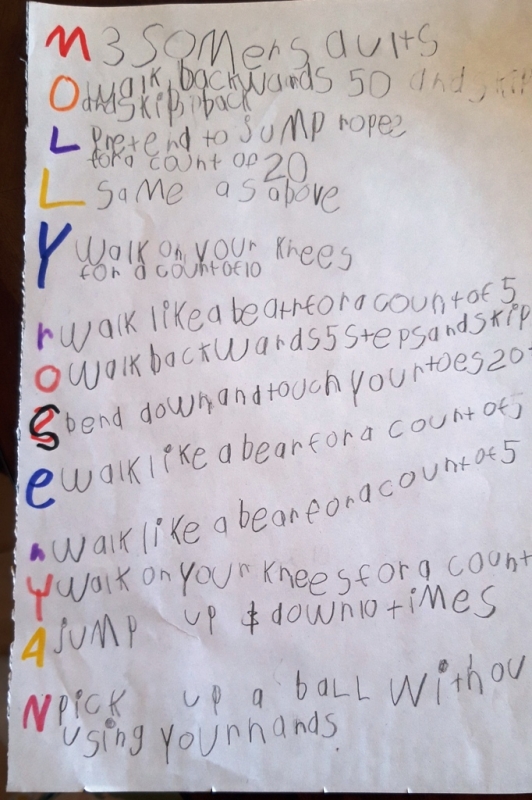 M 3 SOMersaults
O walk backwards 50 and skip
and skip back
L Pretend to JUMP ropes
for a count of 20
L Same as above
Y walk on your knees
for a count of 10
r walk like a bear for a count of 5
o walk backwards 5 steps and skip
S bend down and touch your toes 20
e walk like a bear for a count of 5
n walk like a bear for a count of 5
Y walk on your knees for a count
A JUMP up & down 10 times
N pick up a baLL withou
using your hands.